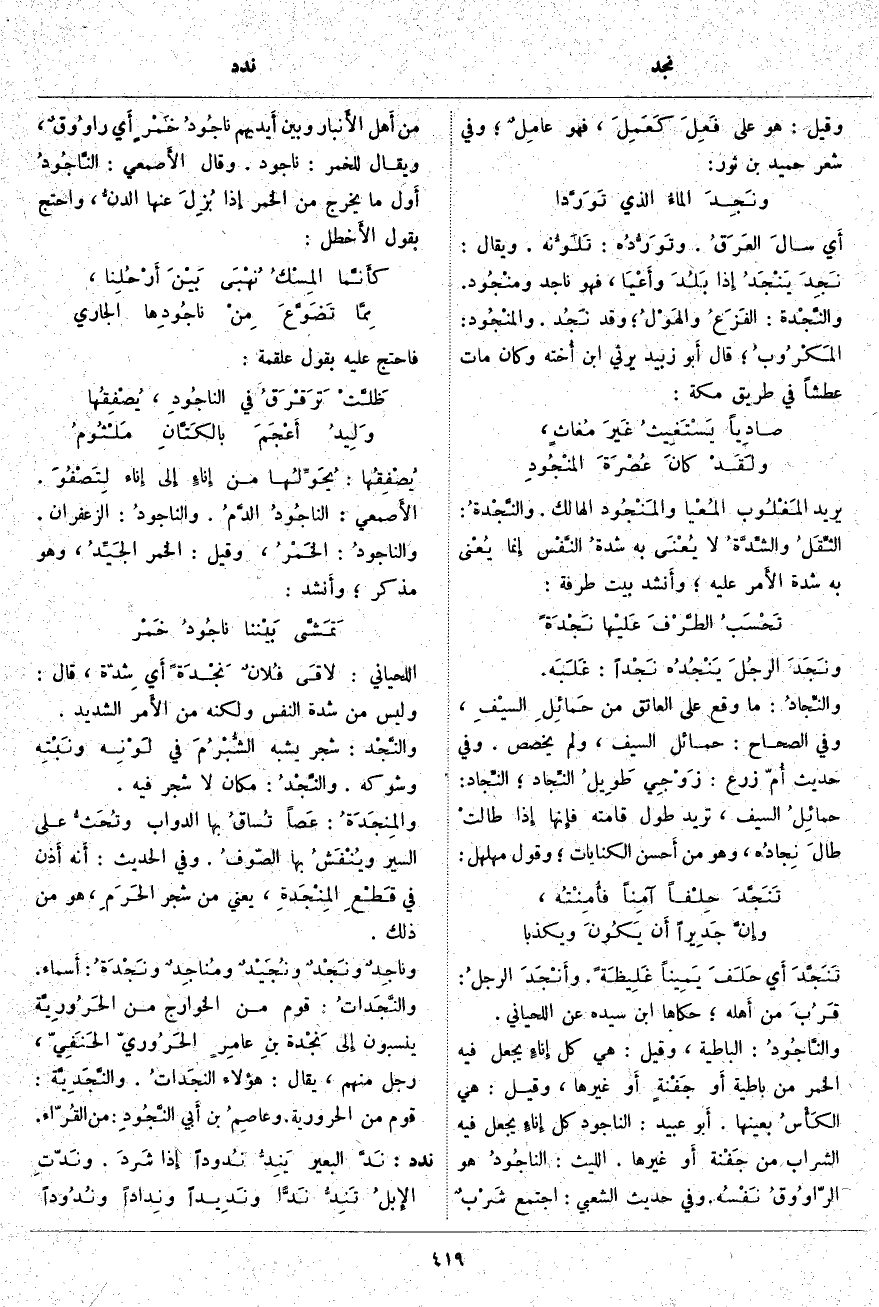 نجد
ندد
وقيل : هو على فَعِلَ كَعَمِلَ ، فهو عامِلٌ ؛ وفي
شعر حميد بن ثور:
ونَجِدَ الماءُ الذي تَوَرَّدا
أي سالَ العَرَقُ . وتَوَرُّدُه : تَلَوُّنه . ويقال :
نَجِدَ يَنْجَدُ إذا بَلُدَ وأَعْيَا ، فهو ناجد ومنْجُود.
والنَّجْدة : الفَزَعُ والهَوْلُ ؛ وقد نَجُد . والمنْجُود:
المَكْرُوبُ ؛ قال أبو زبيد يرثي ابن أُخته وكان مات
عطشاً في طريق مكة :
صادِياً يَسْتَغِيثُ غَيرَ مُغاثٍ ،
ولَقَدْ كانَ عُصْرَةَ المنْجُودِ
يريد المَغْلُوب المُعْيا والمَنْجُود الهالك . والنَّجْدةُ :
الثِّقَلُ والشِّدَّةُ لا يُعْنَى به شدةُ النَّفْس إنما يُعْنى
به شدة الأمر عليه ؛ وأنشد بيت طرفة :
تَحْسَبُ الطَّرْفَ عَلَيْها نَجْدَةً
ونَجَدَ الرجلَ يَنْجُدُه نَجْداً : غَلَبَه.
والنِّجادُ : ما وقع على العاتق من حَمائِلِ السيْفِ ،
وفي الصحاح : حمائل السيف ، ولم يخصص . وفي
حديث أُمّ زرع : زَوْجِي طَوِيلُ النِّجاد ؛ النِّجاد:
حمائِلُ السيف ، تريد طول قامته فإنها إذا طالتْ
طالَ نِجادُه ، وهو من أحسن الكنايات ؛ وقول مهلهل:
تَنَجَّدَ حِلْفاً آمِناً فأَمِنْتُه ،
وإنَّ جَدِيراً أن يَكُونَ ويكذبا
تَنَجَّدَ أي حَلَفَ يَمِيناً غَلِيظةً . وأَنْجَدَ الرجلُ :
قَرُبَ من أهله ؛ حكاها ابن سيده عن اللحياني .
والنَّاجُودُ : الباطية ، وقيل : هي كل إناءٍ يجعل فيه
الخمر من باطية أو جَفْنةٍ أو غيرها ، وقيل : هي
الكأْسُ بعينها . أبو عبيد : الناجود كل إناءٍ يجعل فيه
الشراب من جَفْنة أو غيرها . الليث : الناجُودُ هو
الرّاوُوقُ نَفْسُه. وفي حديث الشعبي : اجتمع شَرْبٌ
من أهل الأنبار وبين أيديهم ناجُودُ خَمْرٍ أي راوُوقٌ ،
ويقال للخمر : ناجود . وقال الأصمعي : النَّاجُودُ
أول ما يخرج من الخمر إذا بُزِلَ عنها الدنُّ ، واحتج
بقول الأخطل :
كأَنَّما المِسْكُ نُهْبَى بَيْنَ أَرْحُلِنا ،
مِمَّا تَضَوَّعَ مِنْ ناجُودِها الجاري
فاحتج عليه بقول علقمة :
ظَلَّتْ تَرَقْرَقُ في الناجُودِ ، يُصْفِقُها
وَلِيدُ أَعْجَمَ بالكَتَّانِ مَلْثُومُ
يُصْفِقُها : يُحَوِّلُها من إناءٍ إلى إناء لِتَصْفُوَ .
الأصمعي : الناجودُ الدَّمُ . والناجودُ : الزعفران .
والناجودُ : الخَمْرُ ، وقيل : الخمر الجَيِّدُ ، وهو
مذكر ؛ وأنشد :
تَمَشَّى بَيْننا ناجُودُ خَمْر
اللحياني : لاقَى فُلانٌ نَجْدَةً أي شِدّة ، قال :
وليس من شدة النفس ولكنه من الأمر الشديد .
والنَّجْد : شجر يشبه الشُّبْرُمَ في لَوْنِه ونَبْتِه
وشوكه . والنَّجْدُ : مكان لا شجر فيه .
والمِنجَدَةُ : عَصاً تُساقُ بها الدواب وتُحَثُّ على
السير ويُنْفَشُ بها الصّوفُ . وفي الحديث : أنه أذن
في قَطْعِ المِنْجَدةِ ، يعني من شجر الحَرَمِ ، هو من
ذلك .
وناجِدٌ ونَجْدٌ ونُجَيْدٌ ومُناجِدٌ ونَجْدَةُ : أسماء.
والنَّجَداتُ : قوم من الخوارج من الحَرُورِيَّة
ينسبون إلى نَجْدة بنِ عامِرٍ الحَرُوريّ الحَنَفِيّ ،
رجل منهم ، يقال : هؤلاء النجَداتُ . والنَّجَدِيَّة :
قوم من الحرورية. وعاصِمُ بن أبي النَّجُودِ : من القُرّاء.
ندد : نَدَّ البعير يَنِدُّ نُدُوداً إذا شَردَ . ونَدّتِ
الإبلُ تَنِدُّ نَدًّا ونَدِيداً ونِداداً ونُدُوداً
٤١٩